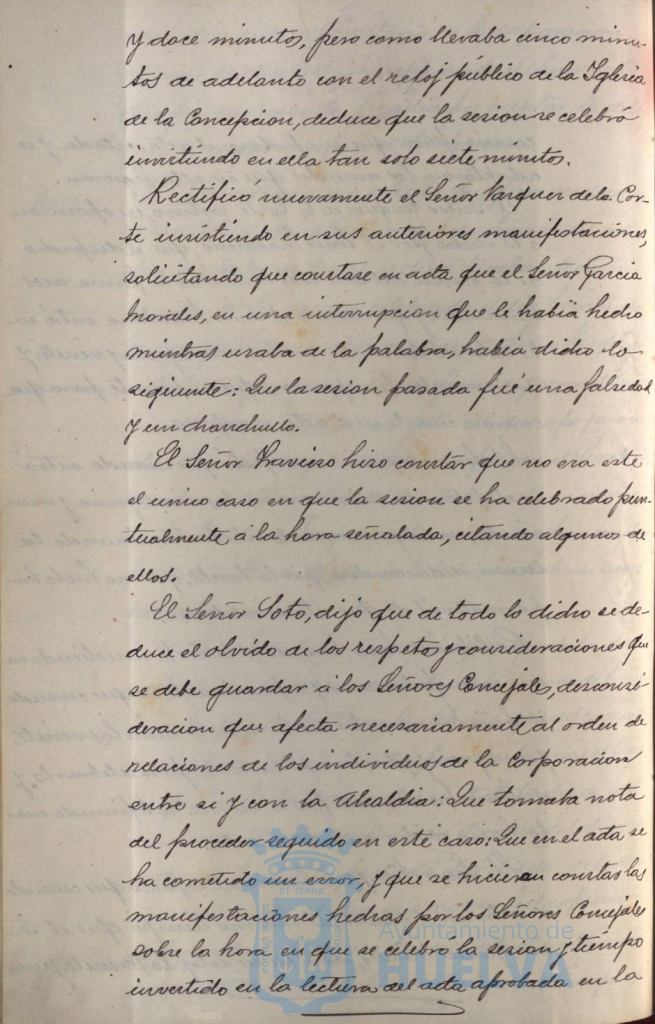 y doce minutos, pero como llevaba cinco minu-
tos de adelanto con el reloj público de la Iglesia
de la Concepcion, deduce que la sesion se celebró
invirtiendo en ella tan solo siete minutos.
Rectificó nuevamente el Señor Vazquez de la Cor-
te insistiendo en sus anteriores manifestaciónes,
solicitando que constase en acta que el Señor Garcia
Morales, en una interrupcion que le habia hecho
mientras usaba de la palabra, habia dicho lo
siguiente: Que la sesion pasada fué una falsedad
y un chanchullo.
El Señor Travieso hizo constar que no era este
el unico caso en que la sesion se ha celebrado pun-
tualmente á la hora señalada, citando algunos de
ellos.
El Señor Soto, dijo que de todo lo dicho se de-
duce el olvido de los respetos y consideraciones que
se debe guardar á los Señores Concejales, desconsi-
deracion que afecta necesariamente al orden de
relaciones de los individuos de la Corporacion
entre si y con la Alcaldia: Que tomaba nota
del proceder seguido en este caso: Que en el acta se
ha cometido un error, y que se hicieran constar las
manifestaciones hechas por los Señores Concejales
sobre la hora en que se celebró la sesion y tiempo
invertido en la lectura del acta aprobada en la
Ayuntamiento de
HUELVA
ET TERRA